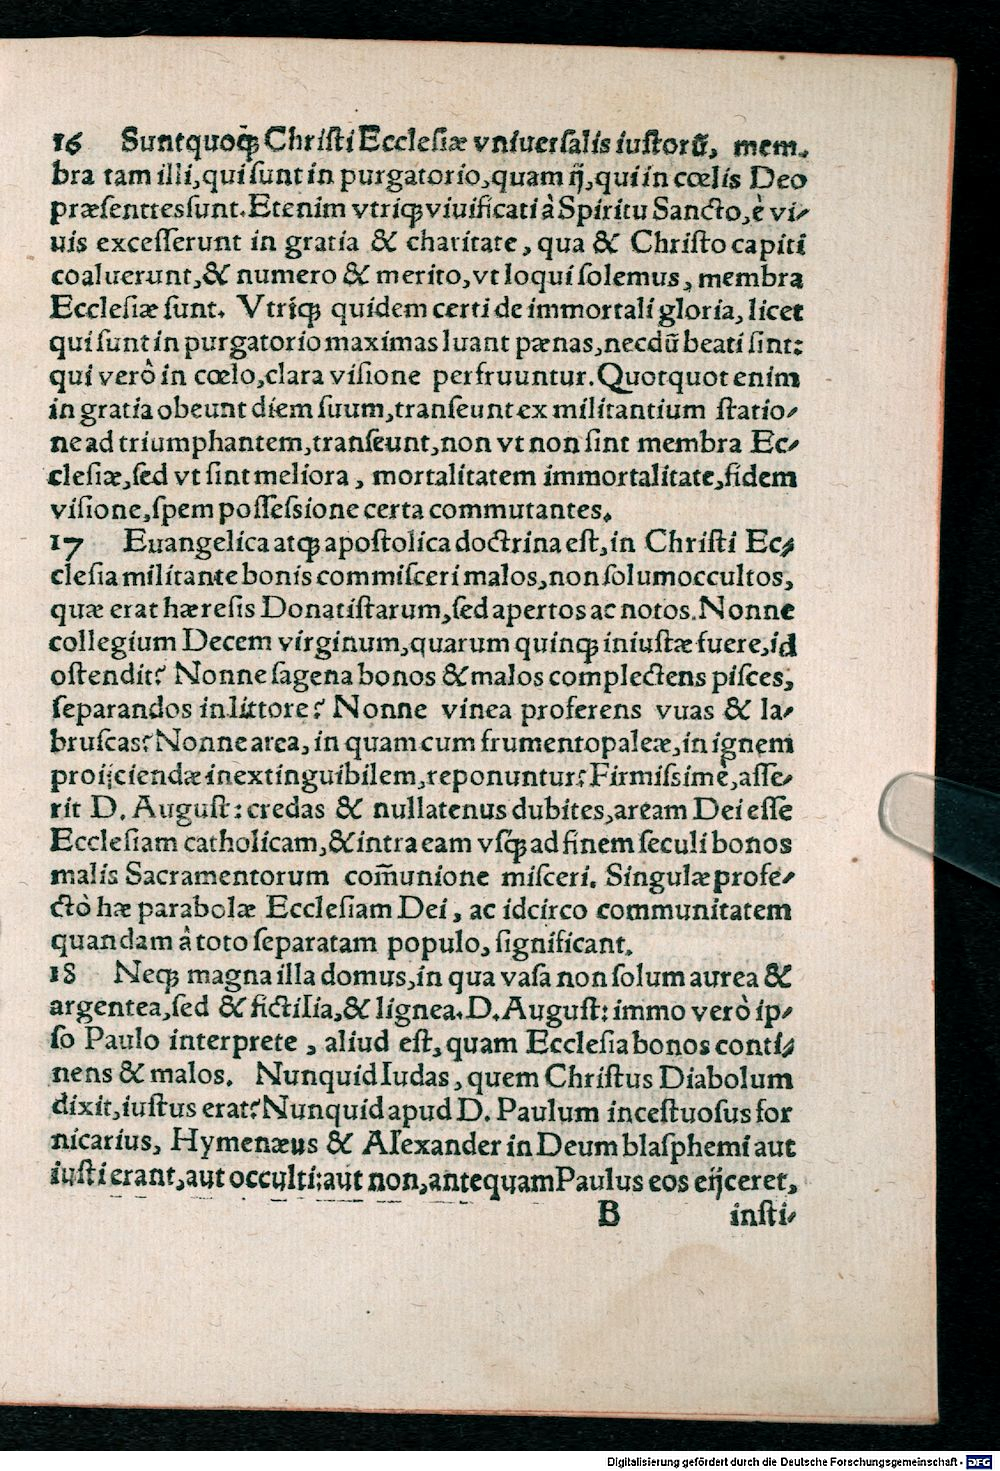 16 Sunt quoqꝫ Chriſti Eccleſiæ vniuerſalis iuſtorũ, mem-
bra tam illi, qui ſunt in purgatorio, quam ij, qui in cœlis Deo
præſenttes ſunt. Etenim vtriqꝫ viuificati à Spiritu Sancto, è vi-
uis exceſſerunt in gratia & charitate, qua & Chriſto capiti
coaluerunt, & numero & merito, vt loqui ſolemus, membra
Eccleſiæ ſunt. Vtriqꝫ quidem certi de immortali gloria, licet
qui ſunt in purgatorio maximas luant pænas, necdũ beati ſint:
qui verò in cœlo, clara viſione perfruuntur. Quotquot enim
in gratia obeunt diem ſuum, tranſeunt ex militantium ſtatio-
ne ad triumphantem, tranſeunt, non vt non ſint membra Ec-
cleſiæ, ſed vt ſint meliora, mortalitatem immortalitate, fidem
viſione, ſpem poſſeſsione certa commutantes.
17 Euangelica atqꝫ apoſtolica doctrina eſt, in Chriſti Ec-
cleſia militante bonis commiſceri malos, non ſolum occultos,
quæ erat hæreſis Donatiſtarum, ſed apertos ac notos. Nonne
collegium Decem virginum, quarum quinqꝫ iniuſtæ fuere, id
oſtendit? Nonne ſagena bonos & malos complectens piſces,
ſeparandos in littore? Nonne vinea proferens vuas & la-
bruſcas? Nonne area, in quam cum frumento paleæ, in ignem
proijciendæ inextinguibilem, reponuntur? Firmiſsimè, aſſe-
rit D. Auguſt: credas & nullatenus dubites, aream Dei eſſe
Eccleſiam catholicam, & intra eam vſqꝫ ad finem ſeculi bonos
malis Sacramentorum com̃unione miſceri. Singulæ profe-
ctò hæ parabolæ Eccleſiam Dei, ac idcirco communitatem
quandam â toto ſeparatam populo, ſignificant.
18 Neqꝫ magna illa domus, in qua vaſa non ſolum aurea &
argentea, ſed & fictilia, & lignea. D. Auguſt: immo verò ip-
ſo Paulo interprete, aliud eſt, quam Eccleſia bonos conti-
nens & malos. Nunquid Iudas, quem Chriſtus Diabolum
dixit, iuſtus erat? Nunquid apud D. Paulum inceſtuoſus for
nicarius, Hymenæus & Alexander in Deum blaſphemi aut
iuſti erant, aut occulti; aut non, antequam Paulus eos eijceret,
B inſti-
Digitalisierung gefördert durch die Deutsche Forschungsgemeinschaft - DFG